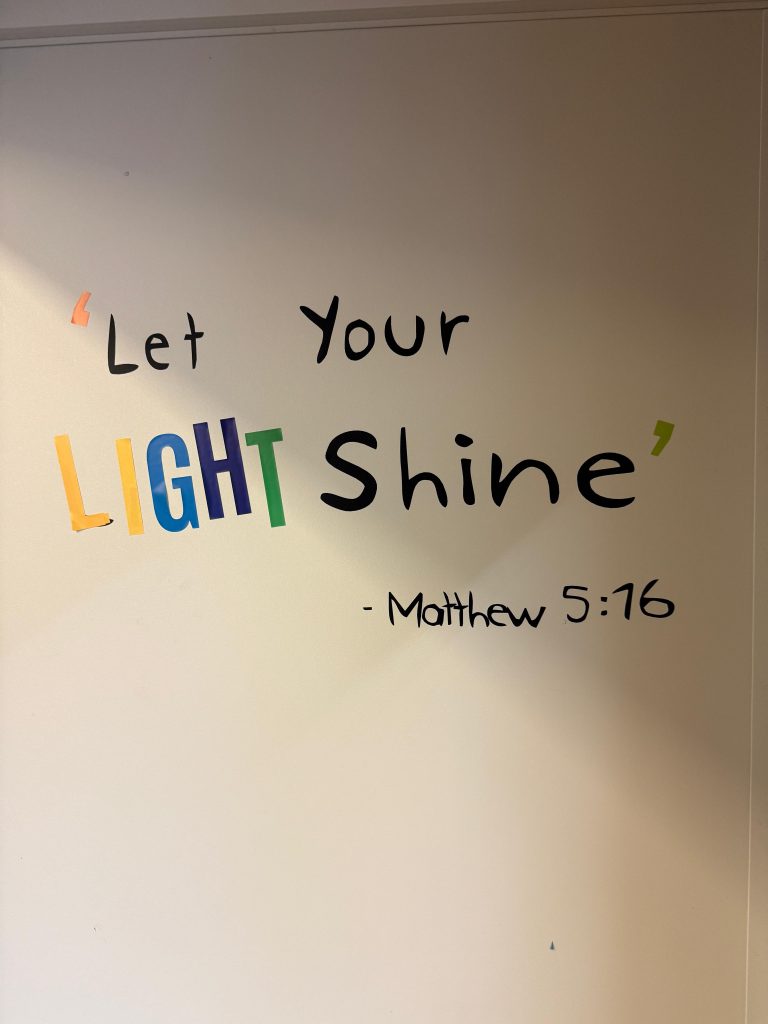 ‘Let Your
LIGHT Shine’
- Matthew 5:16